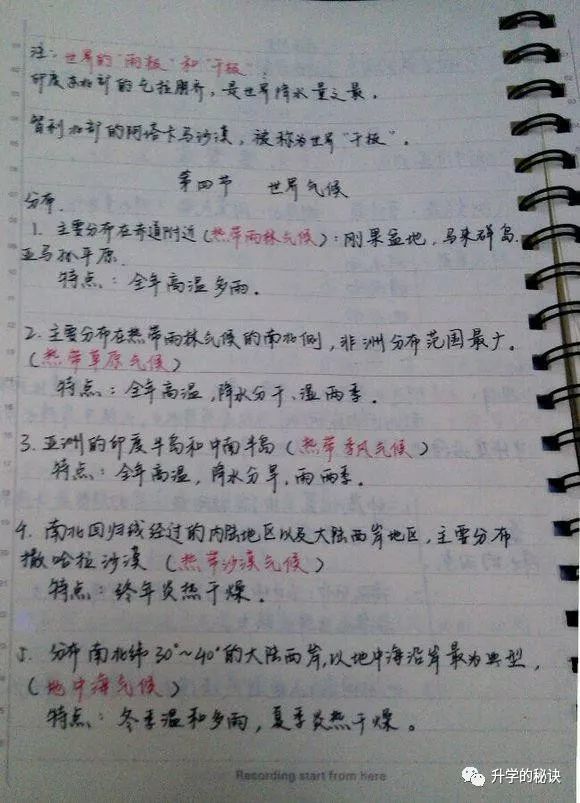 注：世界的"雨极"和"干极"：
印度东北部的乞拉朋齐，是世界降水量之最。
智利北部的阿塔卡马沙漠，被称为世界"干极"。
第四节 世界气候
分布.
1. 主要分布在赤道附近(热带雨林气候)：刚果盆地，马来群岛.
亚马孙平原.
特点：全年高温多雨.
2. 主要分布在热带雨林气候的南北侧，非洲分布范围最广。
(热带草原气候)
特点：全年高温，降水分干、湿两季.
3. 亚洲的印度半岛和中南半岛(热带季风气候)
特点：全年高温，降水分旱，雨两季.
4. 南北回归线经过的内陆地区以及大陆西岸地区，主要分布
撒哈拉沙漠 (热带沙漠气候)
特点：终年炎热干燥.
5. 分布南北纬30°~40°的大陆西岸,以地中海沿岸最为典型，
(地中海气候)
特点：冬季温和多雨，夏季炎热干燥。
Recording start from here
升学的秘诀